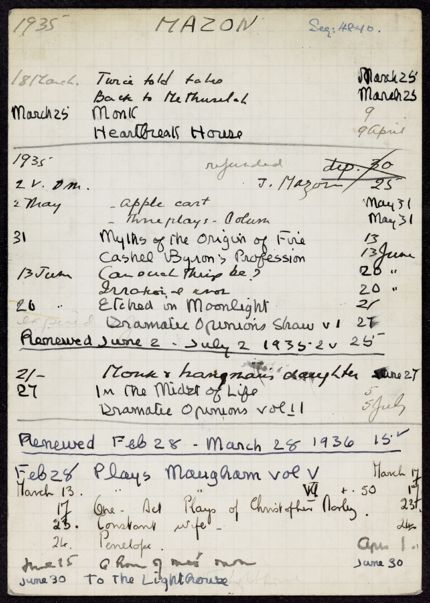 1935 MAZON Seg: 4840.
18 March. Twice told tales March 25
Back to Methuselah March 25
March 25 Monk 9
Heartbreak House 9 april
1935 refunded dep. 30
2 v. J. Mazon 25
2 May - apple cart May 31
- three plays - Colum May 31
31 Myths of the Origin of Fire 13
Cashel Byron's Profession 13 June
13 June Can such things be? 20 "
20 "
20 " Etched in Moonlight 25
Dramatic Opinions Shaw v 1 27
Renewed June 2 - July 2 1935 - 2v 25-
2/- Monk & hangman's daughter June 27
27 In the Midst of Life 5
Dramatic Opinions vol II 5 July
Renewed Feb 28 - March 28 1936 15-
Feb 28 Plays Maugham vol V March 17
March 13. " " VI + . 50 17
17 One - Act Plays of Christopher Morley. 23
23. Constant wife -
24. Penelope. Apr 1
June 15 a Room of one's own June 30
June 30 To the Lighthouse